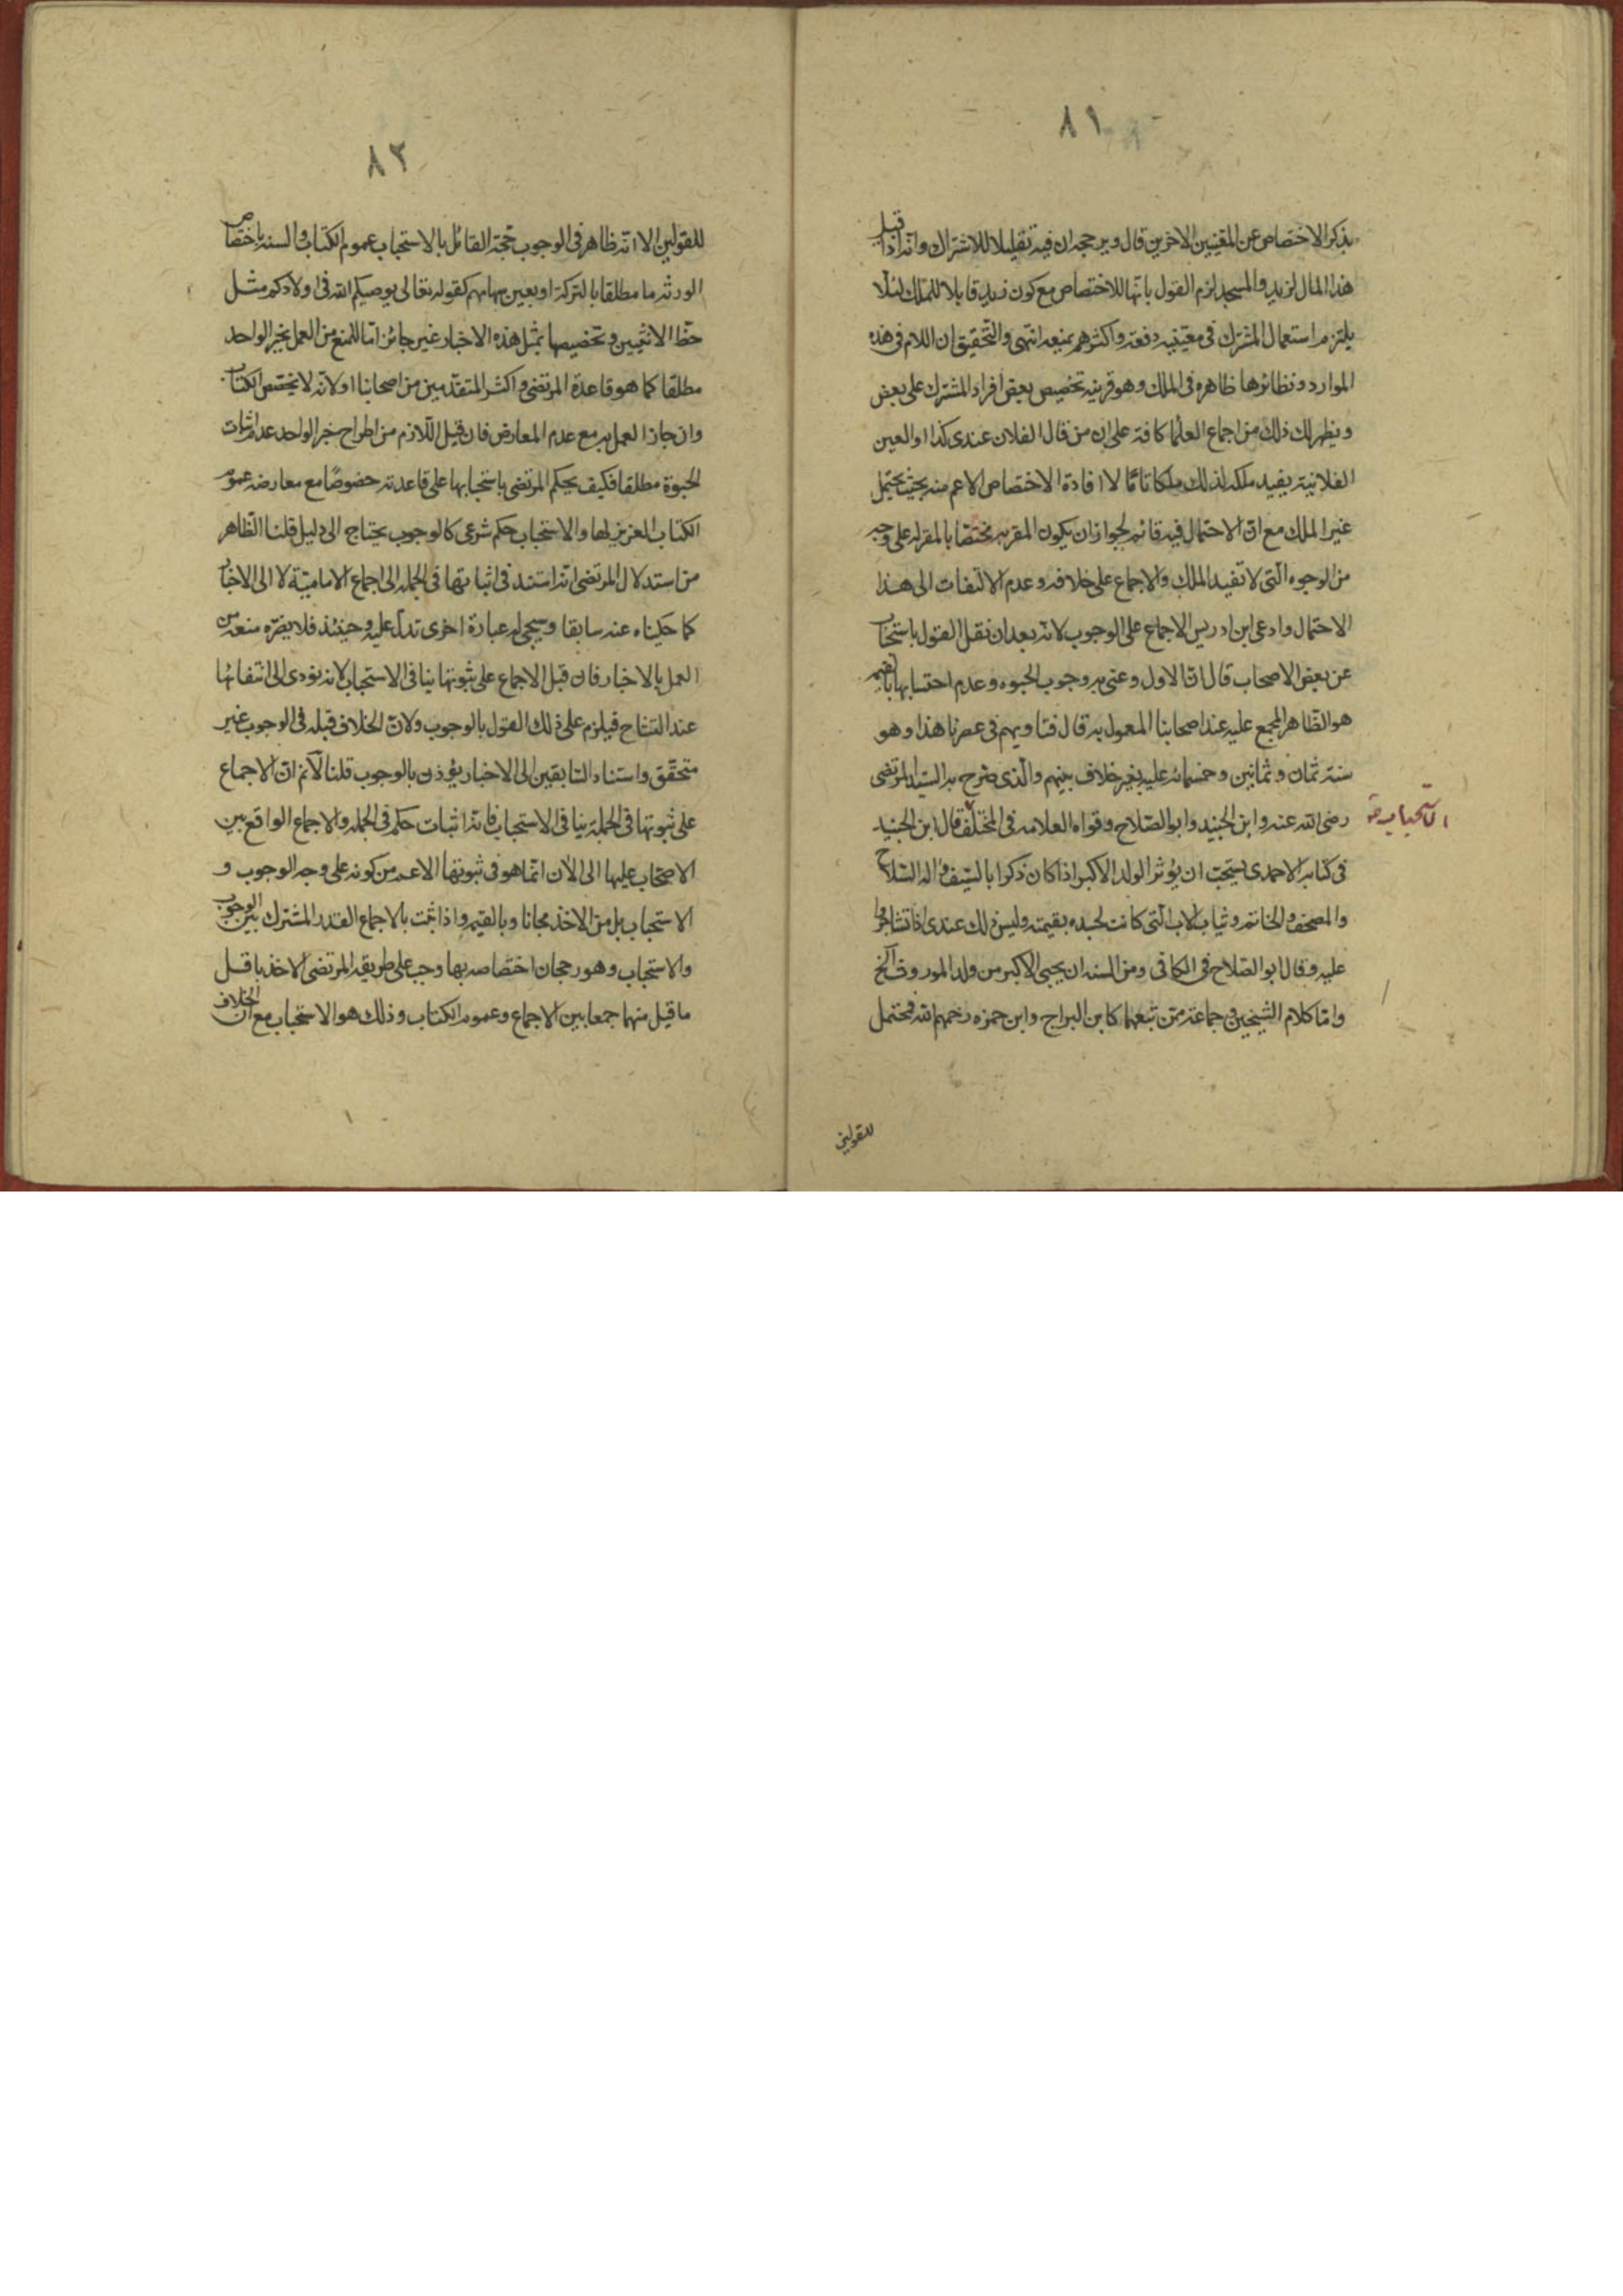 ٨١
بذكر الاختصاص عن المعنيين الاخرين قال ويرجحه ان فيه تقليلا للاشتراك وانه اذا قيل
هذا المال لزيد والمسجد لزم القول بانها للاختصاص مع كون زيد قابلا للملك لئلا
يلتزم استعمال المشترك فى معنييه دفعة واكثرهم يمنعه انتهى والتحقيق ان اللام فى هذه
الموارد ونظائرها ظاهره فى الملك وهو قرينه تخصيص بعض افراد المشترك على بعض
ويظهر لك ذلك من اجماع العلما كافة على ان من قال لفلان عندى كذا او العين
الفلانية يفيد ملكه لذلك ملكا تامّا لا افادة الاختصاص الاعم منه بحيث يحتمل
غير الملك مع انّ الاحتمال فيه قائم لجواز ان يكون المقر به مختصا بالمقر له على وجه
من الوجوه الّتى لا تفيد الملك والاجماع على خلافه وعدم الالتفات الى هذا
الاحتمال وادعى ابن ادريس الاجماع على الوجوب لانّه بعد ان نقل القول باستحباب
عن بعض الاصحاب قال انّ الاول وعنى به وجوب الحبوه وعدم احتسابها بالقيمه
هو الظاهر المجمع عليه عند اصحابنا المعمول به قال فتاويهم فى عصرنا هذا وهو
سنة ثمان وثمانين وخمسمائه عليه بغير خلاف بينهم والّذى صرح به السيّد المرتضى
رضى الله عنه وابن الجنيد وابو الصّلاح وقواه العلامه فى المختلف قال ابن الجنيد
الاستحباب
فى كتابه الاحمدى يستحبّ ان يؤثر الولد الاكبر اذا كان ذكرا بالسّيف واله السّلاح
والمصحف والخاتم وثياب الاب الّتى كانت لجسده بقيمته وليس ذلك عندى اذا تشاجروا
عليه وقال ابو الصّلاح فى الكافى ومن السنه ان يحبى الاكبر من ولد الموروث الخ
وامّا كلام الشيخين فى جماعة ممّن تبعهما كابن البراج وابن حمزه رحمهم الله فمحتمل
للقولين
٨٢
للقولين الا انّه ظاهر فى الوجوب حجّة القائل بالاستحباب عموم الكتاب والسنه باختصاص
الورثه ما مطلقا بالتركة او بعين سهامهم كقوله تعالى يوصيكم الله فى اولادكم مثل
حظّ الانثيين وتخصيصها بمثل هذه الاخبار غير جائز امّا للمنع من العمل بخبر الواحد
مطلقا كما هو قاعدة المرتضى واكثر المتقدّمين من اصحابنا او لانّه لا يخصّص الكتاب
وان جاز العمل به مع عدم المعارض فان قيل اللّازم من اطراح خبر الواحد عدم اثبات
الحبوة مطلقا فكيف يحكم المرتضى باستحبابها على قاعدته خصوصًا مع معارضه عموم
الكتاب العزيز لها والاستحباب حكم شرعى كالوجوب يحتاج الى دليل قلنا الظاهر
من استدلال المرتضى انه استند فى اثباتها فى الجمله الى اجماع الاماميّة لا الى الاخبار
كما حكيناه عنه سابقا وسيجئ له عبارة اخرى تدلّ عليه وحينئذ فلا يضرّه منعه من
العمل بالاخبار فان قيل الاجماع على ثبوتها ينافى الاستحباب لانه يؤدى الى انتفائها
عند التشاح فيلزم على ذلك القول بالوجوب ولانّ الخلاف قبله فى الوجوب غير
متحقّق واستناد السّابقين الى الاخبار يؤذن بالوجوب قلنا لا نم انّ الاجماع
على ثبوتها فى الجملة ينافى الاستحباب فانه اثبات حكم فى الجمله والاجماع الواقع بين
الاصحاب عليها الى الآن انّما هو فى ثبوتها الاعم من كونه على وجه الوجوب و
الاستحباب بل من الاخذ مجانا وبالقيمه واذا ثبت بالاجماع القدر المشترك بين الوجوب
والاستحباب وهو رجحان اختصاصه بها وجب على طريقه المرتضى الاخذ باقل
ما قيل منهما جمعا بين الاجماع وعموم الكتاب وذلك هو الاستحباب مع ان الخلاف